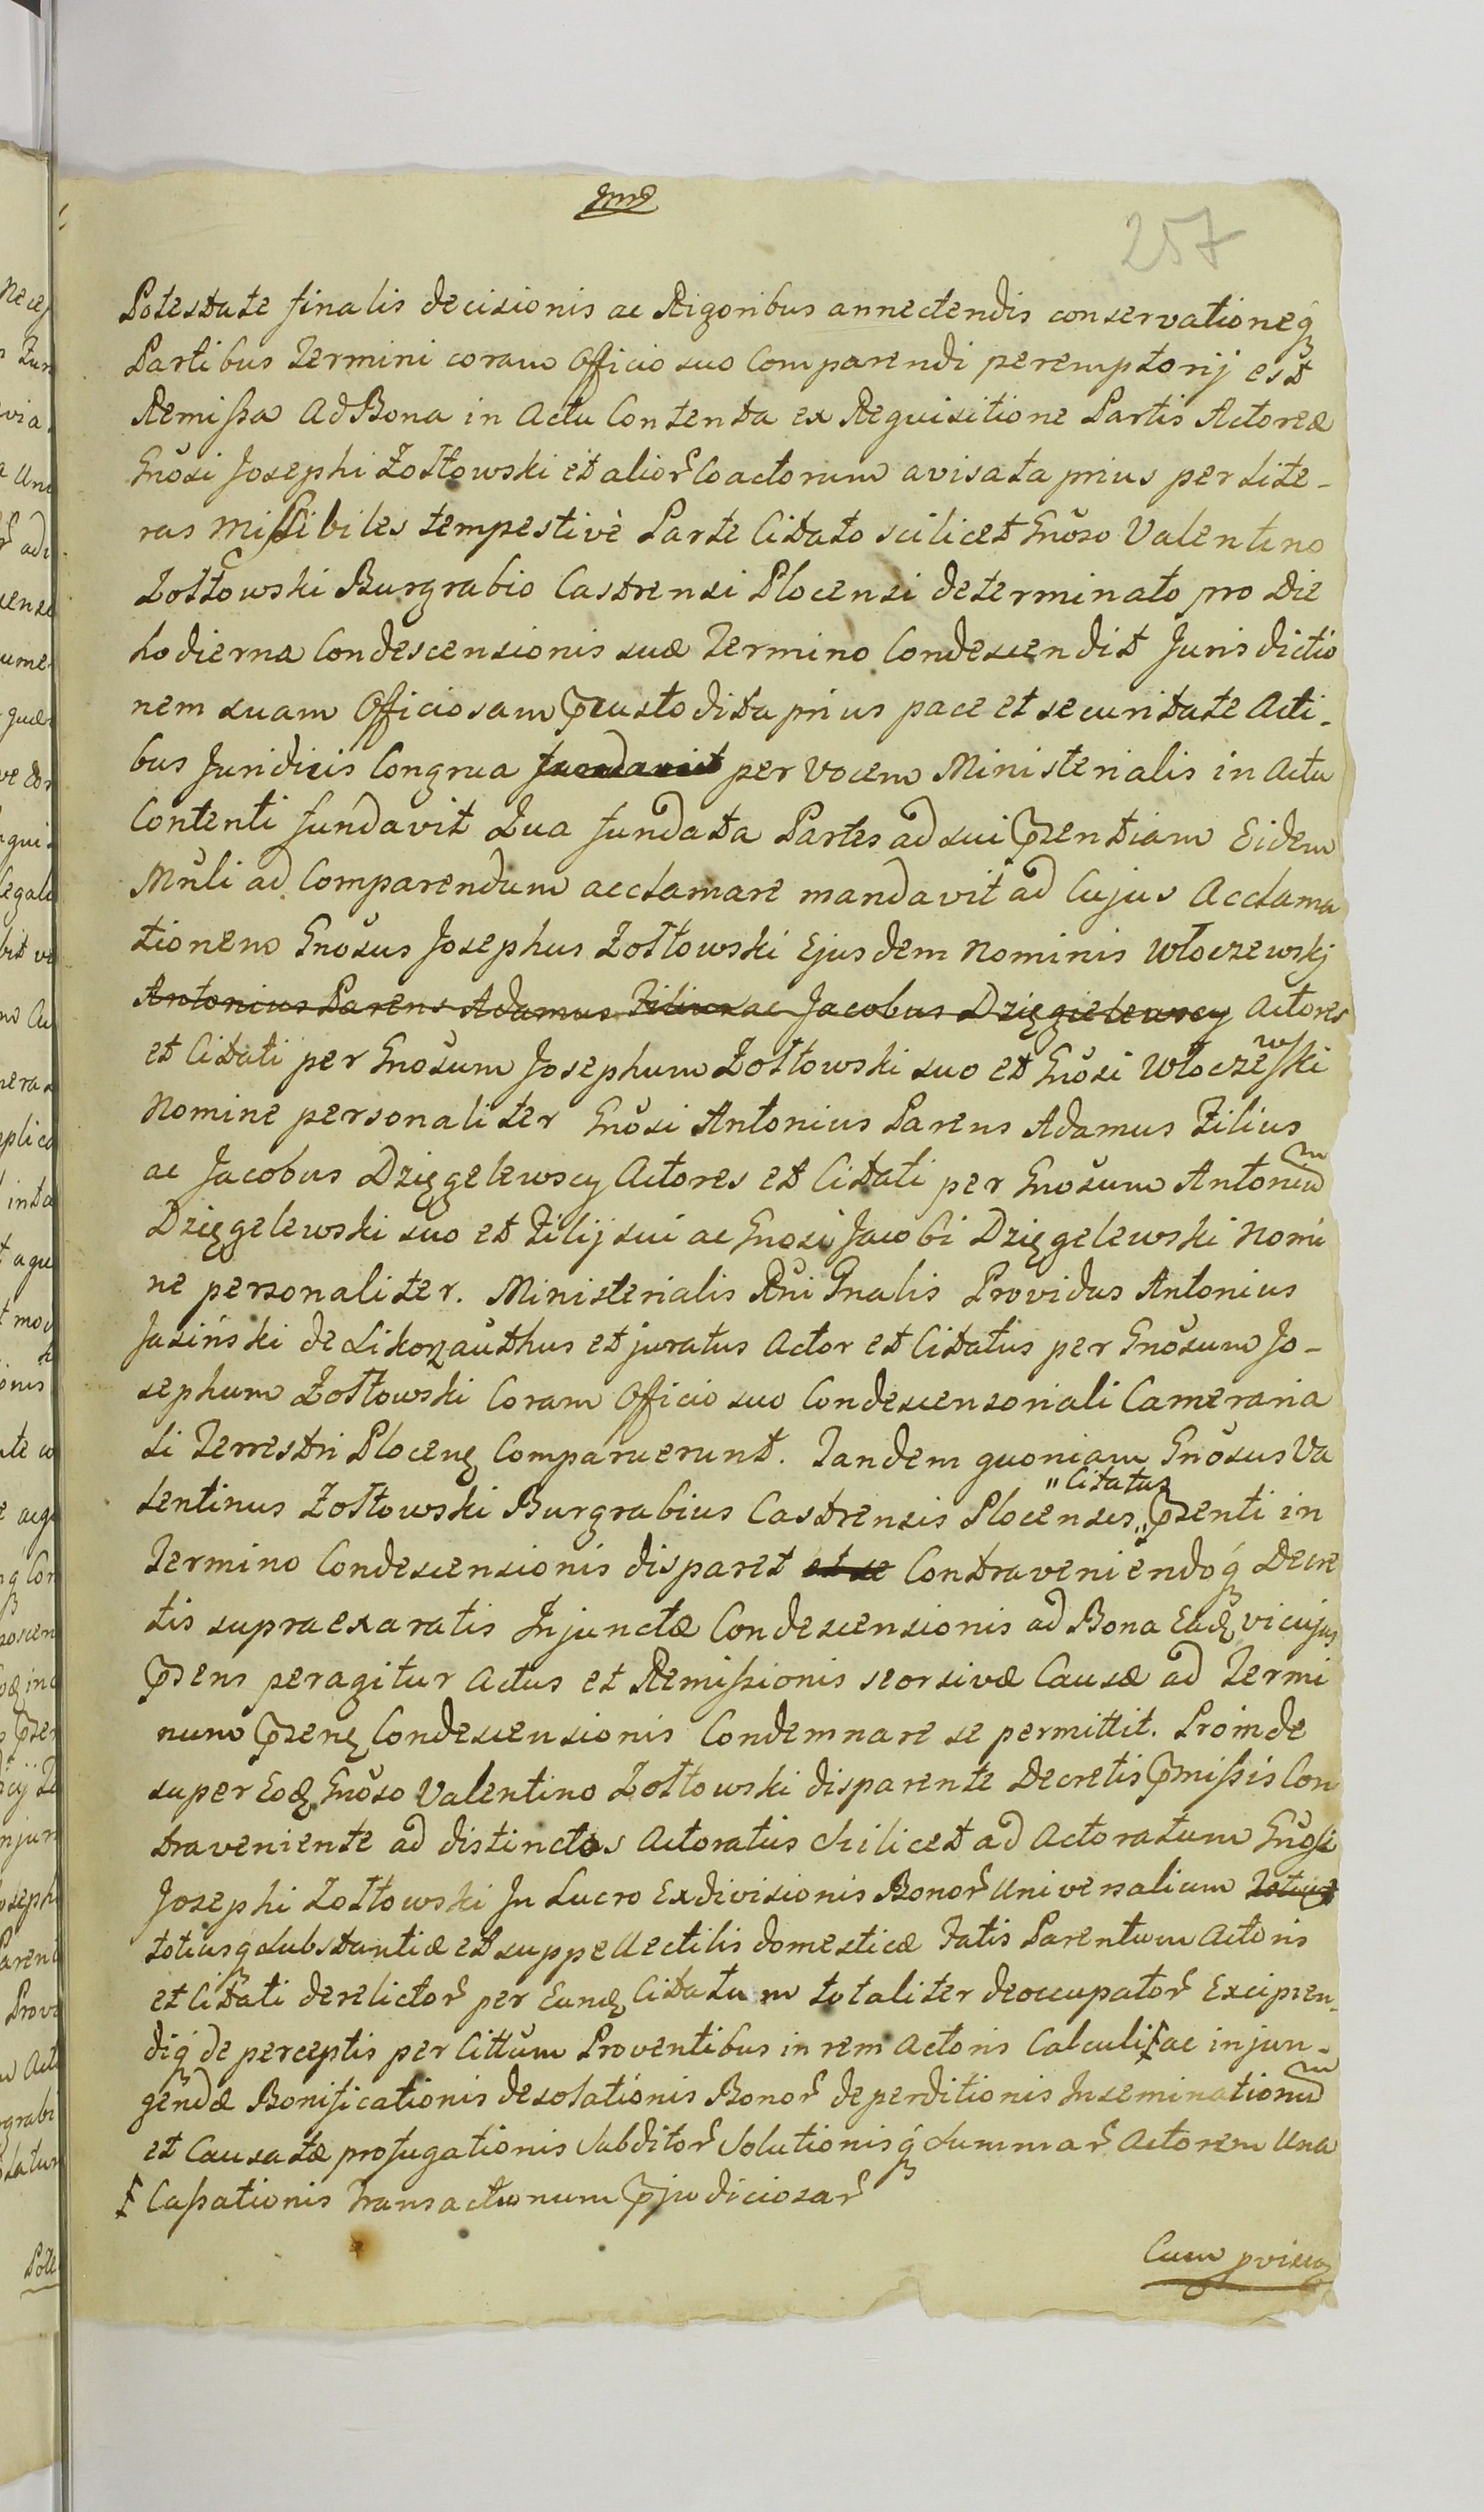 257
Potestate finalis decisionis ac Rigoribus annectendis conservationeq́
Partibus Termini coram Officio suo Comparendi peremptorij est
Remissa Ad Bona in Actu Contenta ex Requisitione Partis Actoreæ
Gnõsi Josephi Zołtowski et aliõr Coactorum avisata prius per Lite-
ras Missibiles tempestivè Parte Citato scilicet Gnõso Valentino
Zołtowski Burgrabio Castrensi Plocensi determinato pro Die
hodierna Condescensionis suæ Termino Condescendit Jurisdictio
nem suam Officiosam p̃custodita prius pace et securitate Acti-
bus Juridicis Congrua fundavit per Vocem Ministerialis in Actu
Contenti fundavit Qua fundata Partes ad sui p̃sentiam Eidem
Mñli ad Comparendum acclamare mandavit ad Cujus Acclama
tionem Gnõsus Josephus Zołtowski Ejusdem Nominis Włoczewskj
Antonius Parens Adamus Filius ac Jacobus Dzięgielewscy Actores
et Citati per Gnõsum Josephum Zołtowski suo et Gnõsi Włoczewski
Nomine personaliter Gnõsi Antonius Parens Adamus Filius
ac Jacobus Dzięgelewscy Actores et Citati per Gnõsum Antonium
Dzięgelewski suo et Filij sui ac Gnõsi Jacobi Dzięgelewski Nomi
ne personaliter. Ministerialis Rñi Gnalis Providus Antonius
Jasiński de Sikorz authus et juratus Actor et Citatus per Gnõsum Jo-
sephum Zołtowski Coram Officio suo Condescensoriali Cameraria
li Terrestri Plocenȝ Comparuerunt. Tandem quoniam Gnõsus Va
lentinus Zołtowski Burgrabius Castrensis Plocensis "Citatus p̃senti in
Termino Condescensionis disparet et se Contraveniendoq́ Decre
tis supra exaratis Injunctæ Condescensionis ad Bona Eadȝ vi cujus
p̃sens peragitur Actus et Remissionis seorsivæ Causæ ad Termi
num p̃senȝ Condescensionis Condemnare se permittit. Proinde
super Eodȝ Gnõso Valentino Zołtowski disparente Decretis p̃missis Con
traveniente ad distinctos Actoratus scilicet ad Actoratum Gnõsi
Josephi Zołtowski In Lucro Exdivisionis Bonor̃ Universalium Totius
totiusq́ Substantiæ et suppellectilis domesticæ Fatis Parentum Actoris
et Citati derelictor̃ per Eundȝ Citatum totaliter deoccupator̃ Excipien-
diq́ de perceptis per Cittũm Proventibus in rem Actoris Calculi ⨍ ac injun-
gendæ Bonificationis desolationis Bonor̃ deperditionis Inseminationum
et Causatæ profugationis Subditor̃ Solutionisq́ Summar̃ Actorem Una
⨍ Cassationis Transactionum p̃judiciosar̃
Cum pvisis